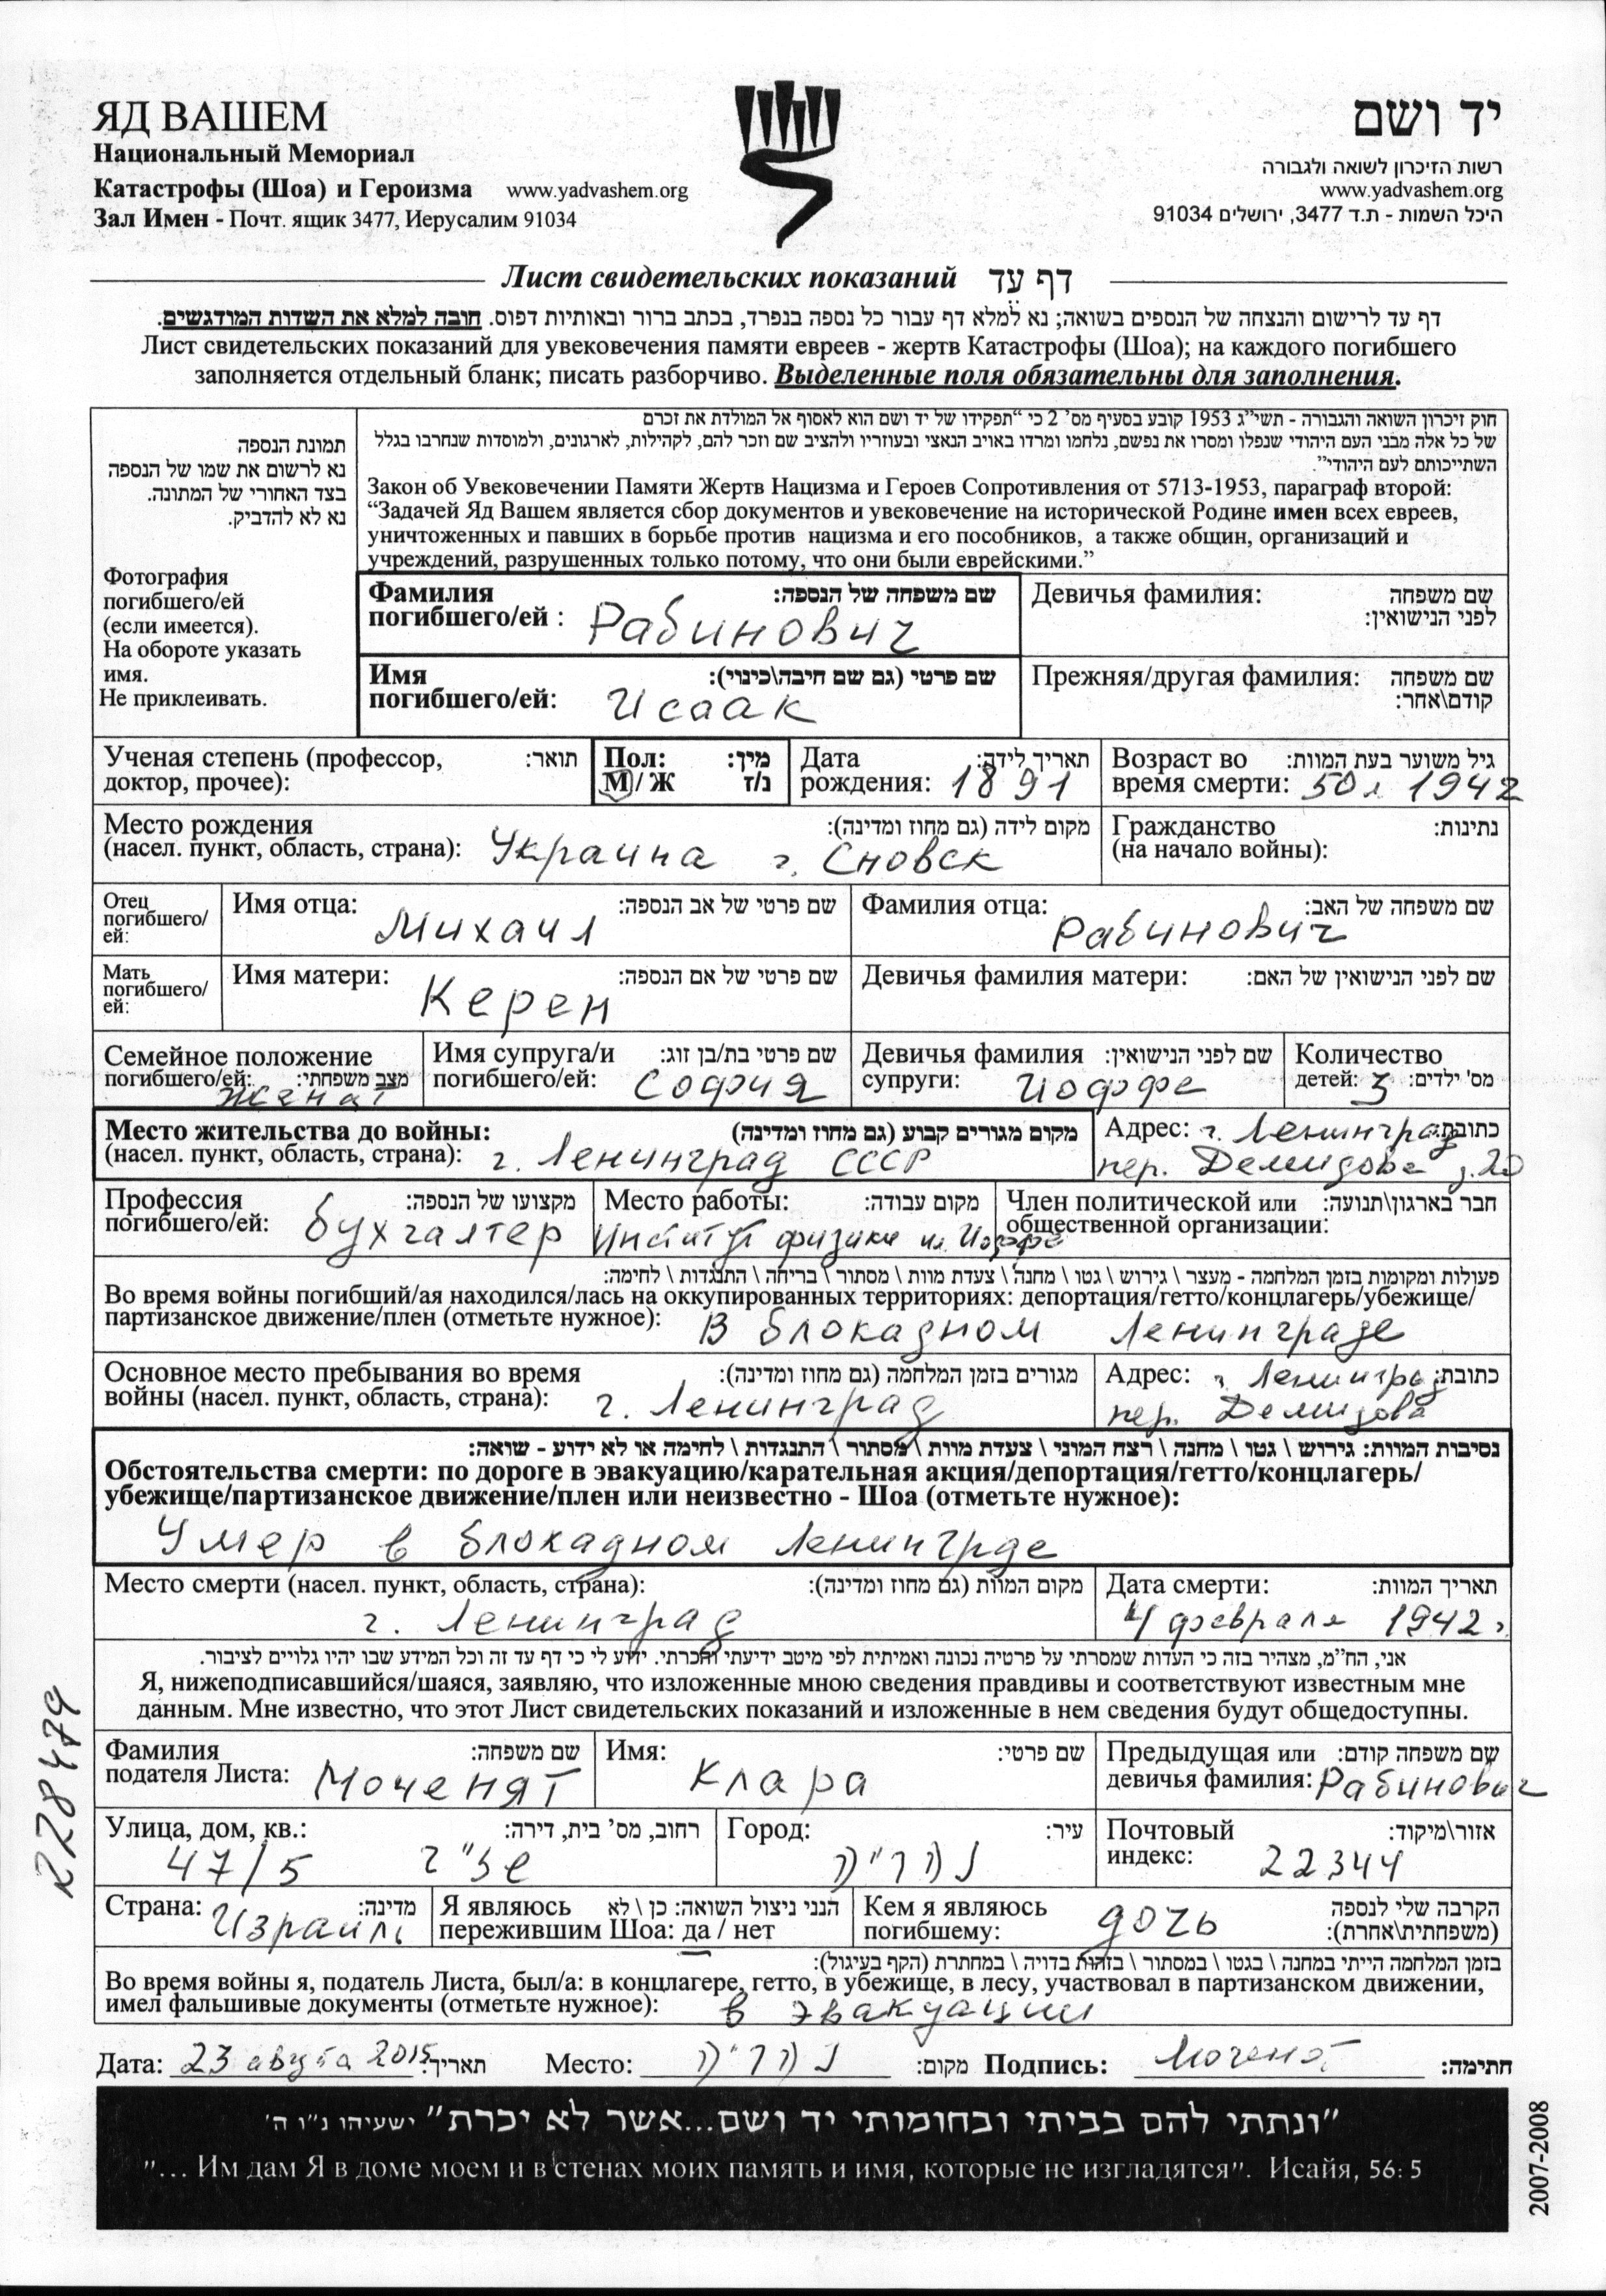 ЯД ВАШЕМ
Национальный Мемориал
Катастрофы (Шоа) и Героизма www.yadvashem.org
Зал Имен - Почт. ящик 3477, Иерусалим 91034
יד ושם
רשות הזיכרון לשואה ולגבורה
www.yadvashem.org
היכל השמות - ת.ד 3477, ירושלים 91034
Лист свидетельских показаний דף עד
דף עד לרישום והנצחה של הנספים בשואה; נא למלא דף עבור כל נספה בנפרד, בכתב ברור ובאותיות דפוס. חובה למלא את השדות המודגשים.
Лист свидетельских показаний для увековечения памяти евреев - жертв Катастрофы (Шоа); на каждого погибшего
заполняется отдельный бланк; писать разборчиво. Выделенные поля обязательны для заполнения.
תמונת הנספה
נא לרשום את שמו של הנספה
בצד האחורי של המתונה.
נא לא להדביק.
Фотография
погибшего/ей
(если имеется).
На обороте указать
имя.
Не приклеивать.
חוק זיכרון השואה והגבורה - תשי"ג 1953 קובע בסעיף מס' 2 כי "תפקידו של יד ושם הוא לאסוף אל המולדת את זכרם
של כל אלה מבני העם היהודי שנפלו ומסרו את נפשם, נלחמו ומרדו באויב הנאצי ובעוזריו ולהציב שם וזכר להם, לקהילות, לארגונים, ולמוסדות שנחרבו בגלל
השתייכותם לעם היהודי".
Закон об Увековечении Памяти Жертв Нацизма и Героев Сопротивления от 5713-1953, параграф второй:
“Задачей Яд Вашем является сбор документов и увековечение на исторической Родине имен всех евреев,
уничтоженных и павших в борьбе против нацизма и его пособников, а также общин, организаций и
учреждений, разрушенных только потому, что они были еврейскими.”
Фамилия שם משפחה של הנספה:
погибшего/ей : Рабинович
Девичья фамилия: שם משפחה
לפני הנישואין:
Имя שם פרטי (גם שם חיבה\כינוי):
погибшего/ей: Исаак
Прежняя/другая фамилия: שם משפחה
קודם\אחר:
Ученая степень (профессор, תואר:
доктор, прочее):
Пол: מין:
М / Ж נ/ז
Дата תאריך לידה:
рождения: 1891
Возраст во גיל משוער בעת המוות:
время смерти: 50л 1942
Место рождения מקום לידה (גם מחוז ומדינה):
(насел. пункт, область, страна): Украина г. Сновск
Гражданство נתינות:
(на начало войны):
Отец
погибшего/
ей:
Имя отца: שם פרטי של אב הנספה:
Михаил
Фамилия отца: שם משפחה של האב:
Рабинович
Мать
погибшего/
ей:
Имя матери: שם פרטי של אם הנספה:
Керен
Девичья фамилия матери: שם לפני הנישואין של האם:
Семейное положение
погибшего/ей: מצב משפחתי:
женат
Имя супруга/и שם פרטי של בת/בן זוג:
погибшего/ей: София
Девичья фамилия שם לפני הנישואין:
супруги: Иоффе
Количество
детей: 3 מס' ילדים:
Место жительства до войны: מקום מגורים קבוע (גם מחוז ומדינה)
(насел. пункт, область, страна): г. Ленинград СССР
Адрес: г. Ленинград כתובת:
пер. Демидова д.20
Профессия מקצועו של הנספה:
погибшего/ей: бухгалтер
Место работы: מקום עבודה:
Институт физики им. Иоффе
Член политической или חבר בארגון\תנועה:
общественной организации:
פעולות ומקומות בזמן המלחמה - מעצר \ גירוש \ גטו \ מחנה \ צעדת מוות \ מסתור \ בריחה \ התנגדות \ לחימה:
Во время войны погибший/ая находился/лась на оккупированных территориях: депортация/гетто/концлагерь/убежище/
партизанское движение/плен (отметьте нужное): В блокадном Ленинграде
Основное место пребывания во время מגורים בזמן המלחמה (גם מחוז ומדינה):
войны (насел. пункт, область, страна): г. Ленинград
Адрес: г. Ленинград כתובת:
пер. Демидова
נסיבות המוות: גירוש \ גטו \ מחנה \ רצח המוני \ צעדת מוות \ מסתור \ התנגדות \ לחימה או לא ידוע - שואה:
Обстоятельства смерти: по дороге в эвакуацию/карательная акция/депортация/гетто/концлагерь/
убежище/партизанское движение/плен или неизвестно - Шоа (отметьте нужное):
Умер в блокадном Ленингрде
Место смерти (насел. пункт, область, страна): מקום המוות (גם מחוז ומדינה):
г. Ленинград
Дата смерти: תאריך המוות:
4 февраля 1942 г.
אני, הח"מ, מצהיר בזה כי העדות שמסרתי על פרטיה נכונה ואמיתית לפי מיטב ידיעתי והכרתי. ידוע לי כי דף עד זה וכל המידע שבו יהיו גלויים לציבור.
Я, нижеподписавшийся/шаяся, заявляю, что изложенные мною сведения правдивы и соответствуют известным мне
данным. Мне известно, что этот Лист свидетельских показаний и изложенные в нем сведения будут общедоступны.
Фамилия שם משפחה:
подателя Листа: Моченят
Имя: שם פרטי:
Клара
Предыдущая или שם משפחה קודם:
девичья фамилия: Рабинович
Улица, дом, кв.: רחוב, מס' בית, דירה:
47/5
Город: עיר:
נהריה
Почтовый אזור\מיקוד:
индекс: 22344
Страна: מדינה:
Израиль
Я являюсь הנני ניצול השואה: כן \ לא
пережившим Шоа: да / нет
Кем я являюсь הקרבה שלי לנספה
погибшему: дочь (משפחתית\אחרת):
בזמן המלחמה הייתי במחנה \ בגטו \ במסתור \ בזהות בדויה \ במחתרת (הקף בעיגול):
Во время войны я, податель Листа, был/а: в концлагере, гетто, в убежище, в лесу, участвовал в партизанском движении,
имел фальшивые документы (отметьте нужное): в эвакуации
Дата: 23 августа 2015 תאריך: Место: נהריה מקום: Подпись: Моченят חתימה:
"ונתתי להם בביתי ובחומותי יד ושם...אשר לא יכרת" ישעיהו נ"ו ה'
"... Им дам Я в доме моем и в стенах моих память и имя, которые не изгладятся". Исайя, 56: 5
2007-2008